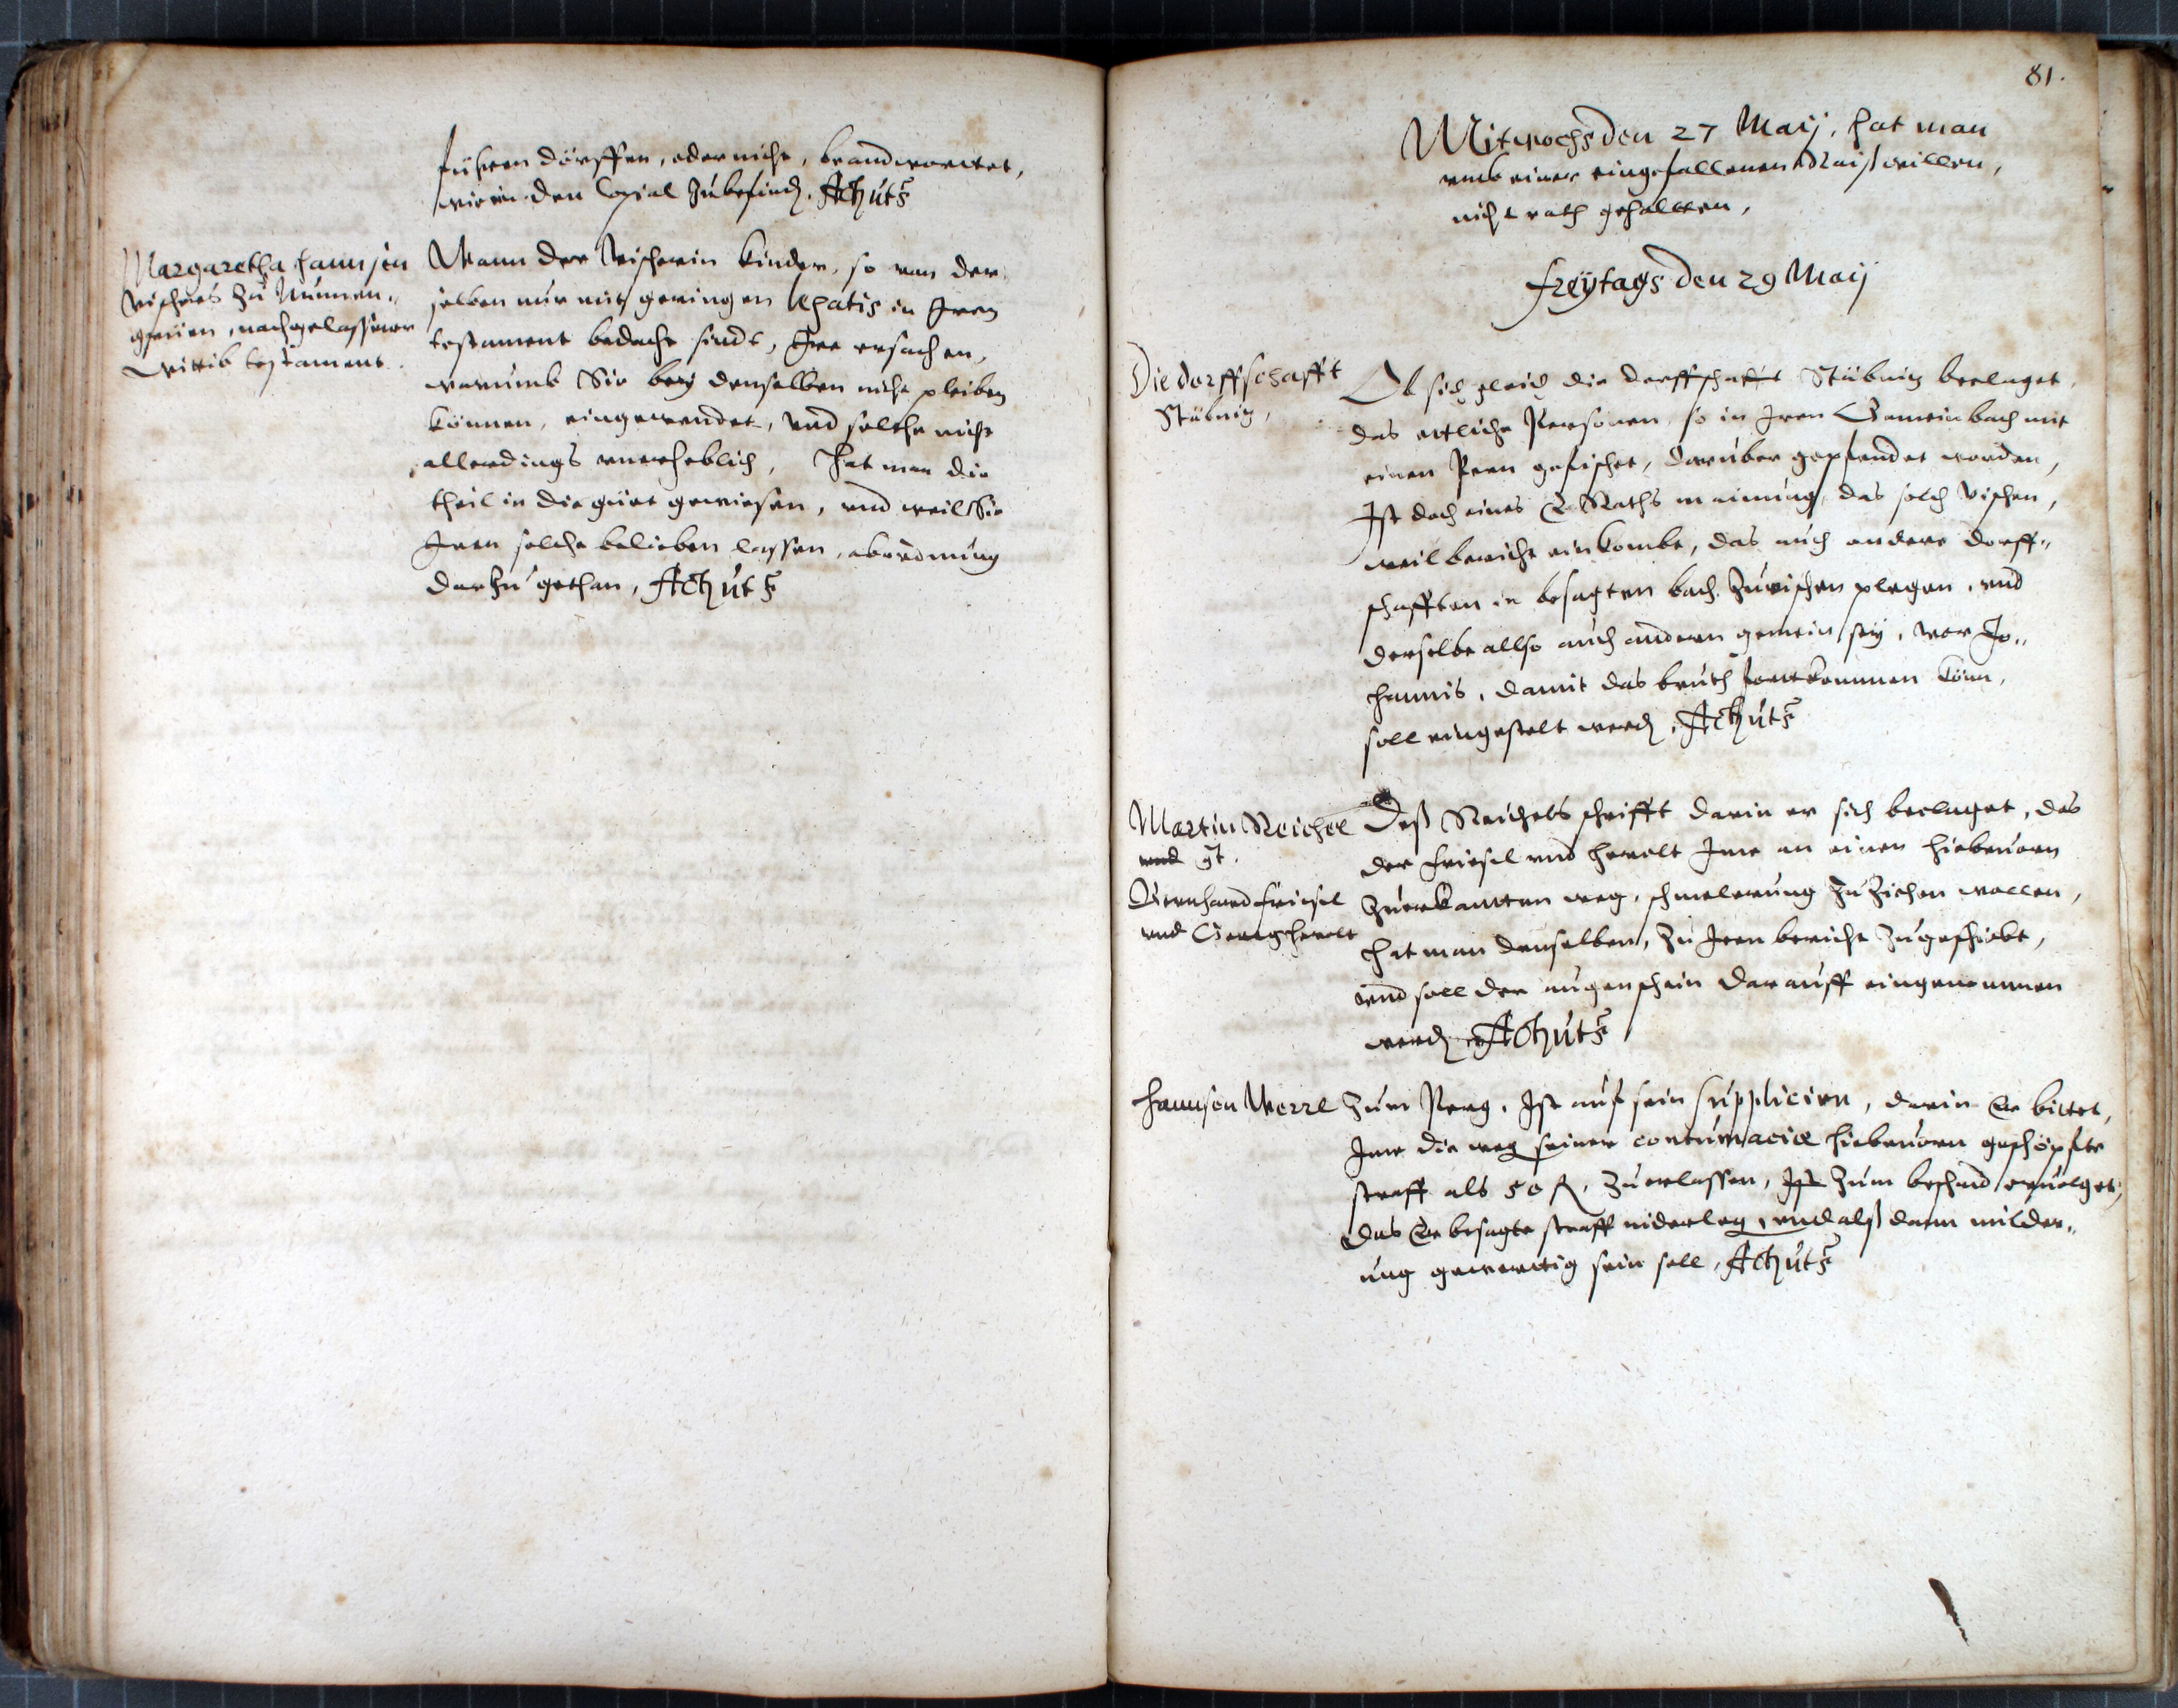 führen dörffen, oder nicht, beandwortet,
wie in den Copial zubefinden. Act ut s
Margaretha Hannsen
Vischers zu
nachgelassener
Wittib testament.
Wann der Vischerin Kinder, so von der
selben nur mit geringen legatis in Irem
testament bedacht sindt, Ire ursachen,
warumb Sie bey denselben nicht pleiben
können, eingewendet, und solche nicht
allerdings unerheblich, Hat man die
theil in die güte gewiesen, und weil Sie
Inen solche belieben lassen, abordnung
darzu gethan, Act ut s
81.
Mitwochs den 27 Maij, hat man
umb einer eingefallenen Raiß willen,
nicht rath gehalten,
Freytags den 29 Maij
Die dorffschafft
Stübnig,
Ob sich gleich die dorffschafft Stübnig beclaget,
das ettliche Personen, so in Iren Gemeinbach mit
einen Pern gefischet, darüber gepfendet worden,
Ist doch eines E. Raths mainung, das solch Vischen,
weil bericht einkombt, das auch andere dorff-
schafften in besagten bach zuvischen plegen, und
derselbe allso auch andern gemein sey, vor Jo-
hannis, damit das bruth fortkommen könn,
soll eingestelt werden, Act ut s
Martin Reichel
und
Bernhard Friesel
und Georg Herolt
Deß Reichels schrifft darin er sich beclaget, das
der Friesel und Herolt Ime an einen hiebevorn
zuerkantten weg, schmelerung zuziehen wollen,
hat man denselben, zu Iren bericht zugeschickt,
und soll der augenschein darauff eingenommen
werden Act ut s
Hannsen Merrl zum Perg, Ist auf sein suppliciren, darin Er bittet,
Ime die weg seiner contumaciae hiebevorn geschöpfte
straff als 50 fl, zuerlassen, Ist zum beschaid ervolget,
das Er besagte straff niderleg, und alß dann milder-
ung gewerttig sein soll, Act ut s